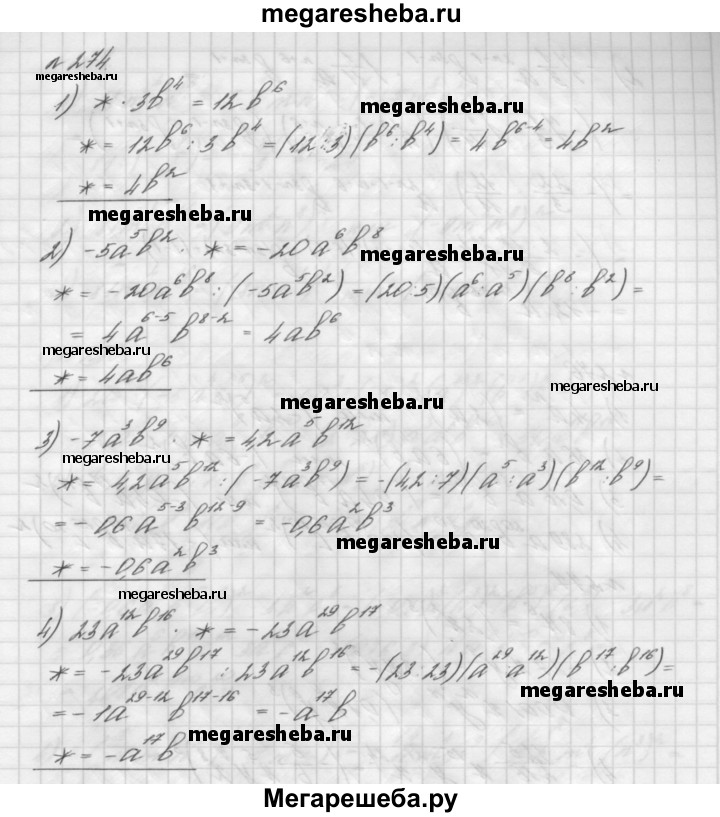 megaresheba.ru
n 274
megaresheba.ru
1) * · 3b⁴ = 12b⁶
megaresheba.ru
* = 12b⁶ : 3b⁴ = (12:3)(b⁶:b⁴) = 4b⁶⁻⁴ = 4b²
* = 4b²
megaresheba.ru
2) -5a⁵b² · * = -20a⁶b⁸
megaresheba.ru
* = -20a⁶b⁸ : (-5a⁵b²) = (20:5)(a⁶:a⁵)(b⁸:b²) =
= 4a⁶⁻⁵b⁸⁻² = 4ab⁶
megaresheba.ru
* = 4ab⁶
megaresheba.ru
megaresheba.ru
3) -7a³b⁹ · * = 4,2a⁵b¹²
megaresheba.ru
* = 4,2a⁵b¹² : (-7a³b⁹) = -(4,2:7)(a⁵:a³)(b¹²:b⁹) =
= -0,6a⁵⁻³b¹²⁻⁹ = -0,6a²b³
megaresheba.ru
* = -0,6a²b³
megaresheba.ru
4) 23a¹²b¹⁶ · * = -23a²⁹b¹⁷
* = -23a²⁹b¹⁷ : 23a¹²b¹⁶ = -(23:23)(a²⁹:a¹²)(b¹⁷:b¹⁶) =
megaresheba.ru
= -1a²⁹⁻¹²b¹⁷⁻¹⁶ = -a¹⁷b
megaresheba.ru
* = -a¹⁷b
megaresheba.ru
Мегарешеба.ру